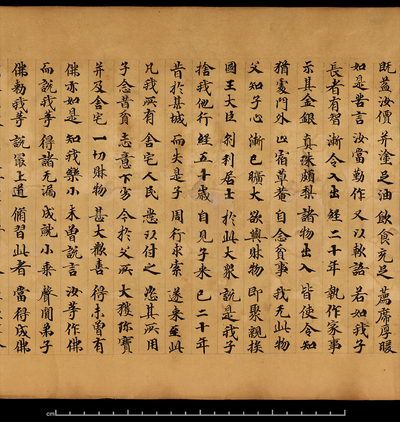 既益汝價 并塗足油 飲食充足 薦席厚暖
如是苦言 汝當勤作 又以軟語 若如我子
長者有智 漸令入出 經二十年 執作家事
示其金銀 真珠頗梨 諸物出入 皆使令知
猶處門外 止宿草菴 自念貧事 我无此物
父知子心 漸已曠大 欲與財物 即聚親族
國王大臣 剎利居士 於此大眾 說是我子
捨我他行 經五十歲 自見子來 已二十年
昔於某城 而失是子 周行求索 遂來至此
凡我所有 舍宅人民 悉以付之 恣其所用
子念昔貧 志意下劣 今於父所 大獲珎寶
并及舍宅 一切財物 甚大歡喜 得未曾有
佛亦如是 知我樂小 未曾說言 汝等作佛
而說我等 得諸无漏 成就小乘 聲聞弟子
佛勅我等 說最上道 脩習此者 當得成佛
cm